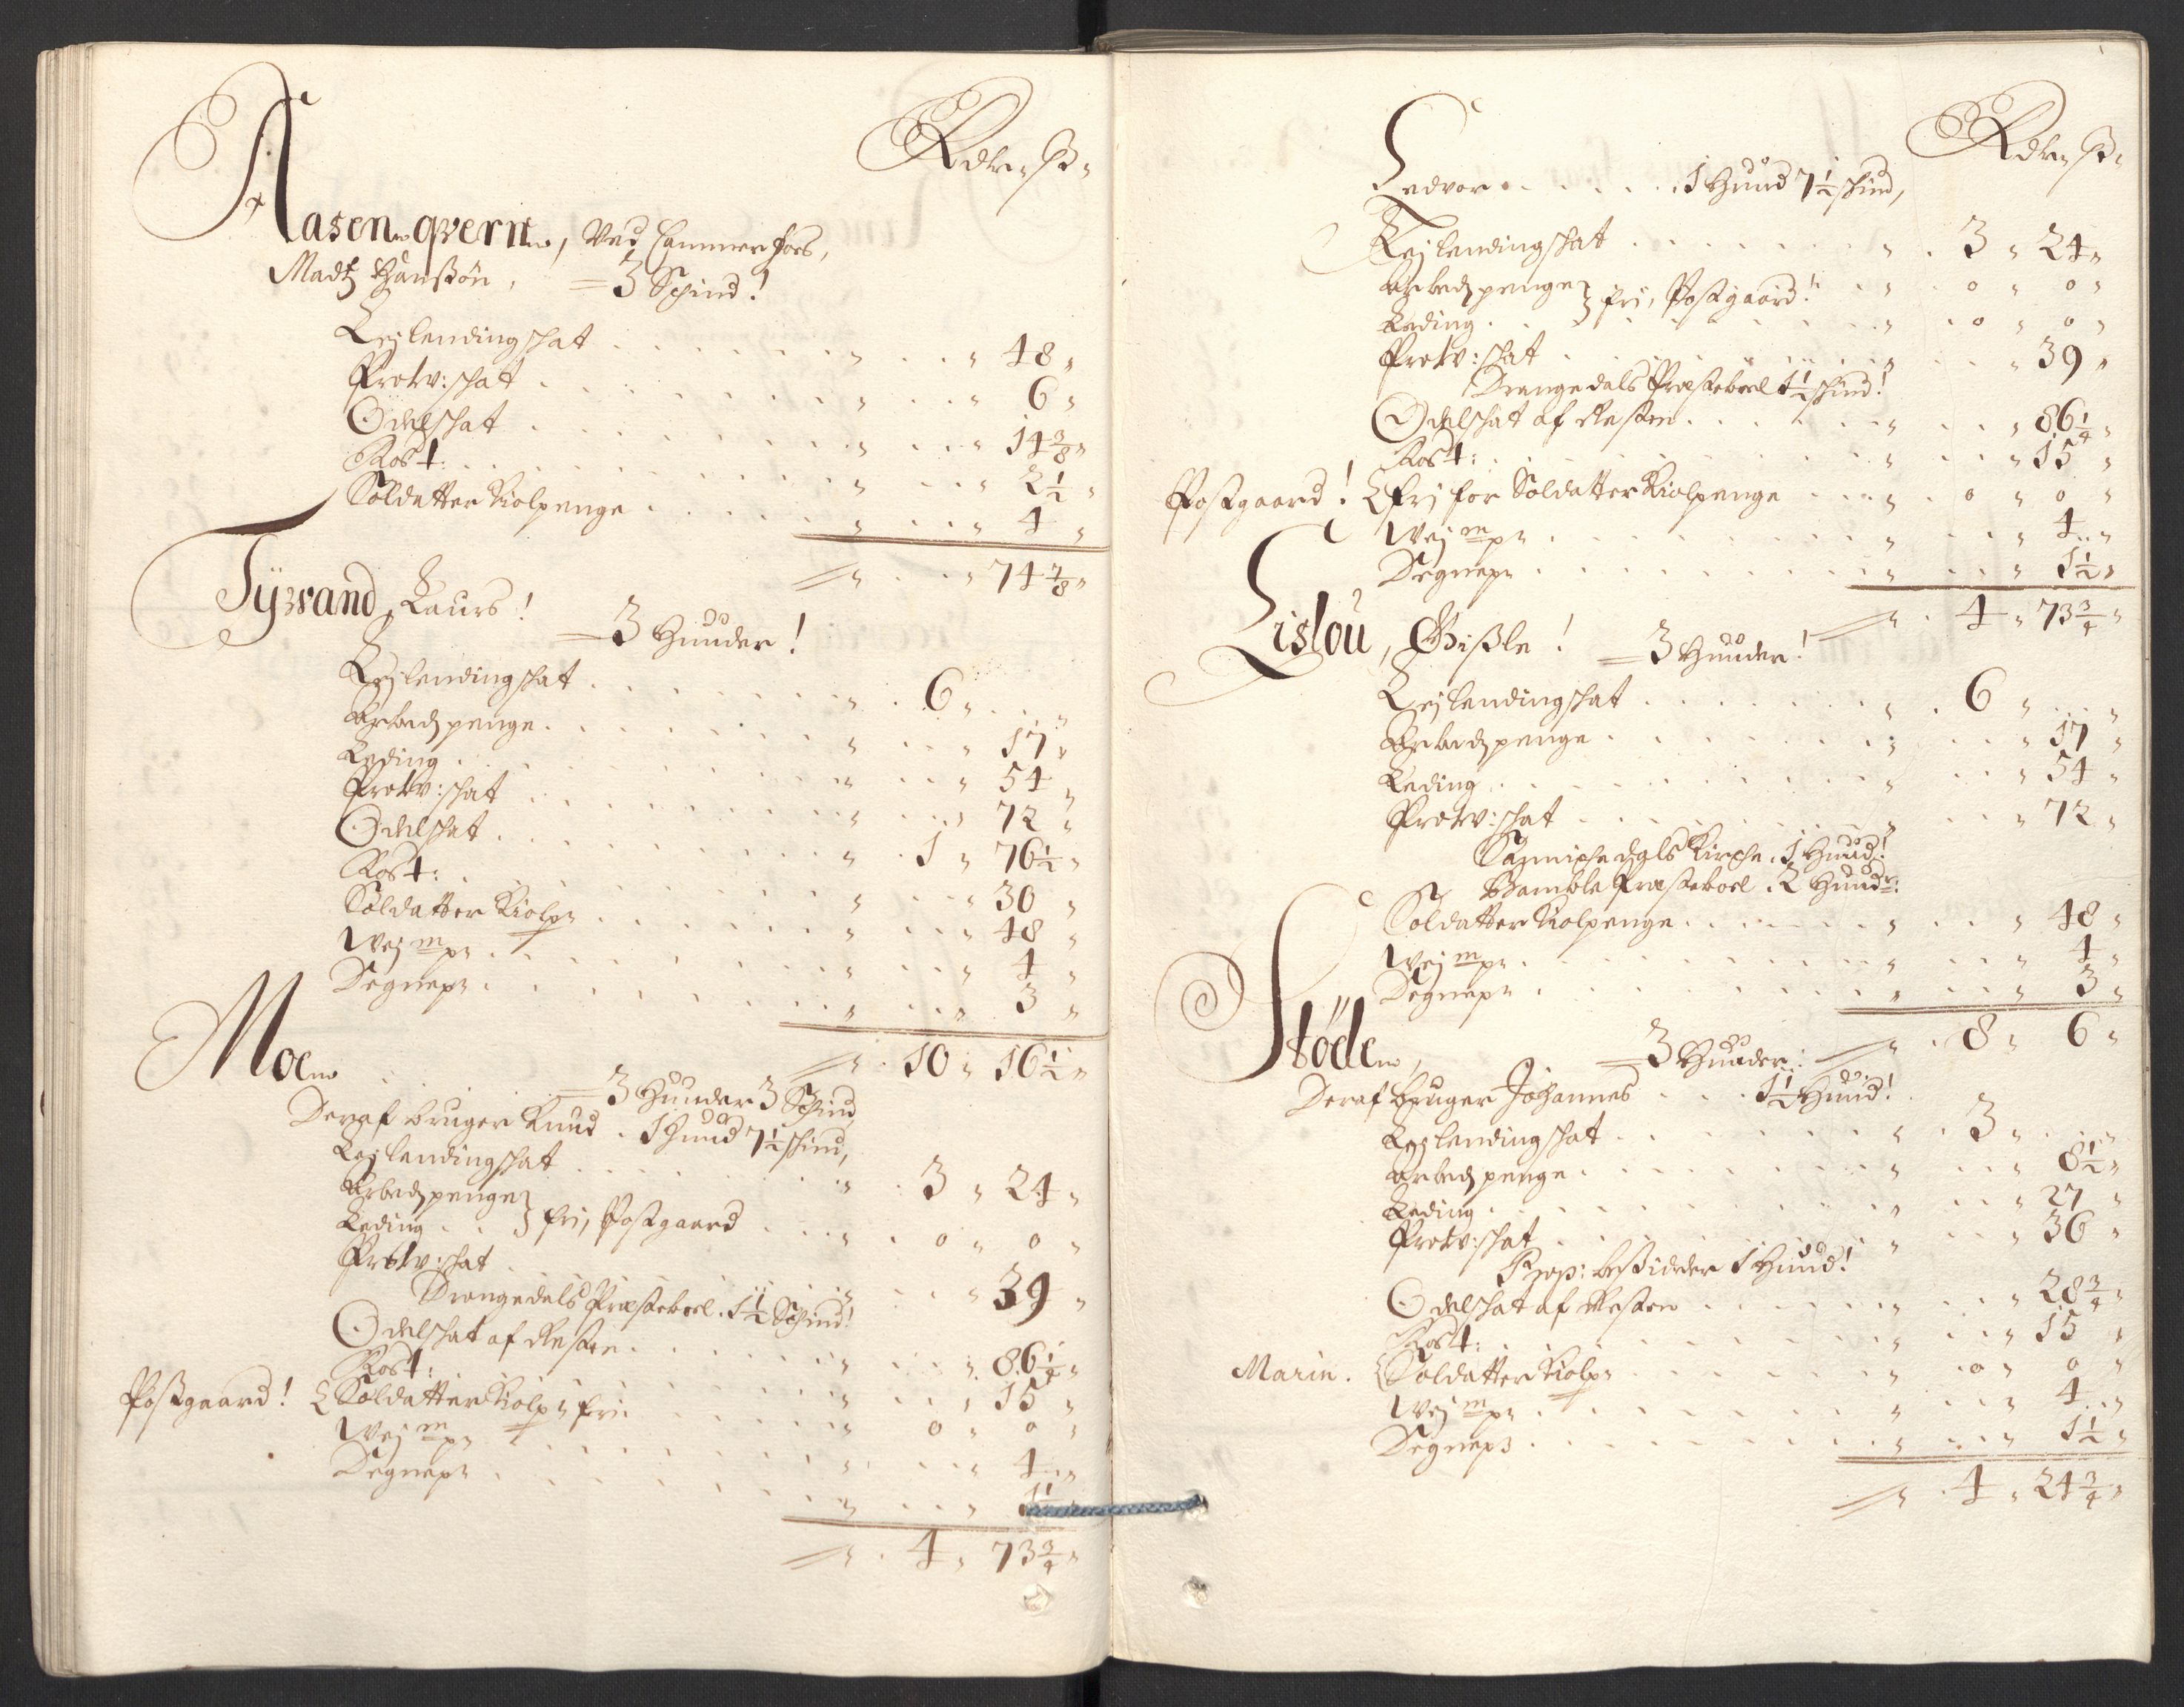 Rdr ß
Aasen qvern, Ved Cammerfors,
Madtz Hanßön, = 3 Schind!
Lejlendingschat 48
Protv: schat 6
Odelschat 14 3/8
Rost: 2 1/2
Soldatter Kiolpenge 4
74 7/8
Tÿvand, Laurs! = 3 Huuder!
Lejlendingschat 6
Arbedtzpenge 17
Leding 54
Protv: schat 72
Odelschat 1 76 1/2
Rost: 30
Soldatter Kiolp 48
Wej m p 4
Degnep 3
10 16 1/2
Moe = 3 Huuder 3 Schind
Deraf bruger Knud 1 Huud 7 1/2 schind,
Lejlendingschat 3 24
Arbedtzpenge
Leding } fri, Postgaard 0 0
Protv: schat 39
Drangedals Præsteboel 1 1/2 Schind!
Odelschat af Resten 86 1/4
Rost: 15
Postgaard! { Soldatter Kiolp fri 0 0
Wej m p 4
Degnep 1 1/2
4 73 3/4
Rdr ß
Ledvor 1 Huud 7 1/2 schind,
Lejlendingschat 3 24
Arbedtzpenge } fri, Postgaard! 0 0
Leding 0 0
Protv: schat 39
Drangedals Præsteboel 1 1/2 schind!
Odelschat af Resten 86 1/4
Rost: 15
Postgaard! { fri for Soldatter Kiolpenge 0 0
Wej m p 4
Degnep 1 1/2
4 73 3/4
Lislou, Gißle! = 3 Huuder!
Lejlendingschat 6
Arbedtzpenge 17
Leding 54
Protv: schat 72
Sannichedals Kirche 1 Huud!
Bamble Præsteboel 2 Huudr:
Soldatter Kiolpenge 48
Wej m p 4
Degnep 3
8 6
Stöde, = 3 Huuder:
Deraf bruger Johannes 1 1/2 Huud!
Lejlendingschat 3
Arbedtzpenge 8 1/2
Leding 27
Protv: schat 36
Prop: beßidder 1 Huud!
Odelschat af Resten 28 3/4
Rost: 15
Marin. { Soldatter Kiolp 0 0
Wej m p 4
Degnep 1 1/2
4 24 3/4